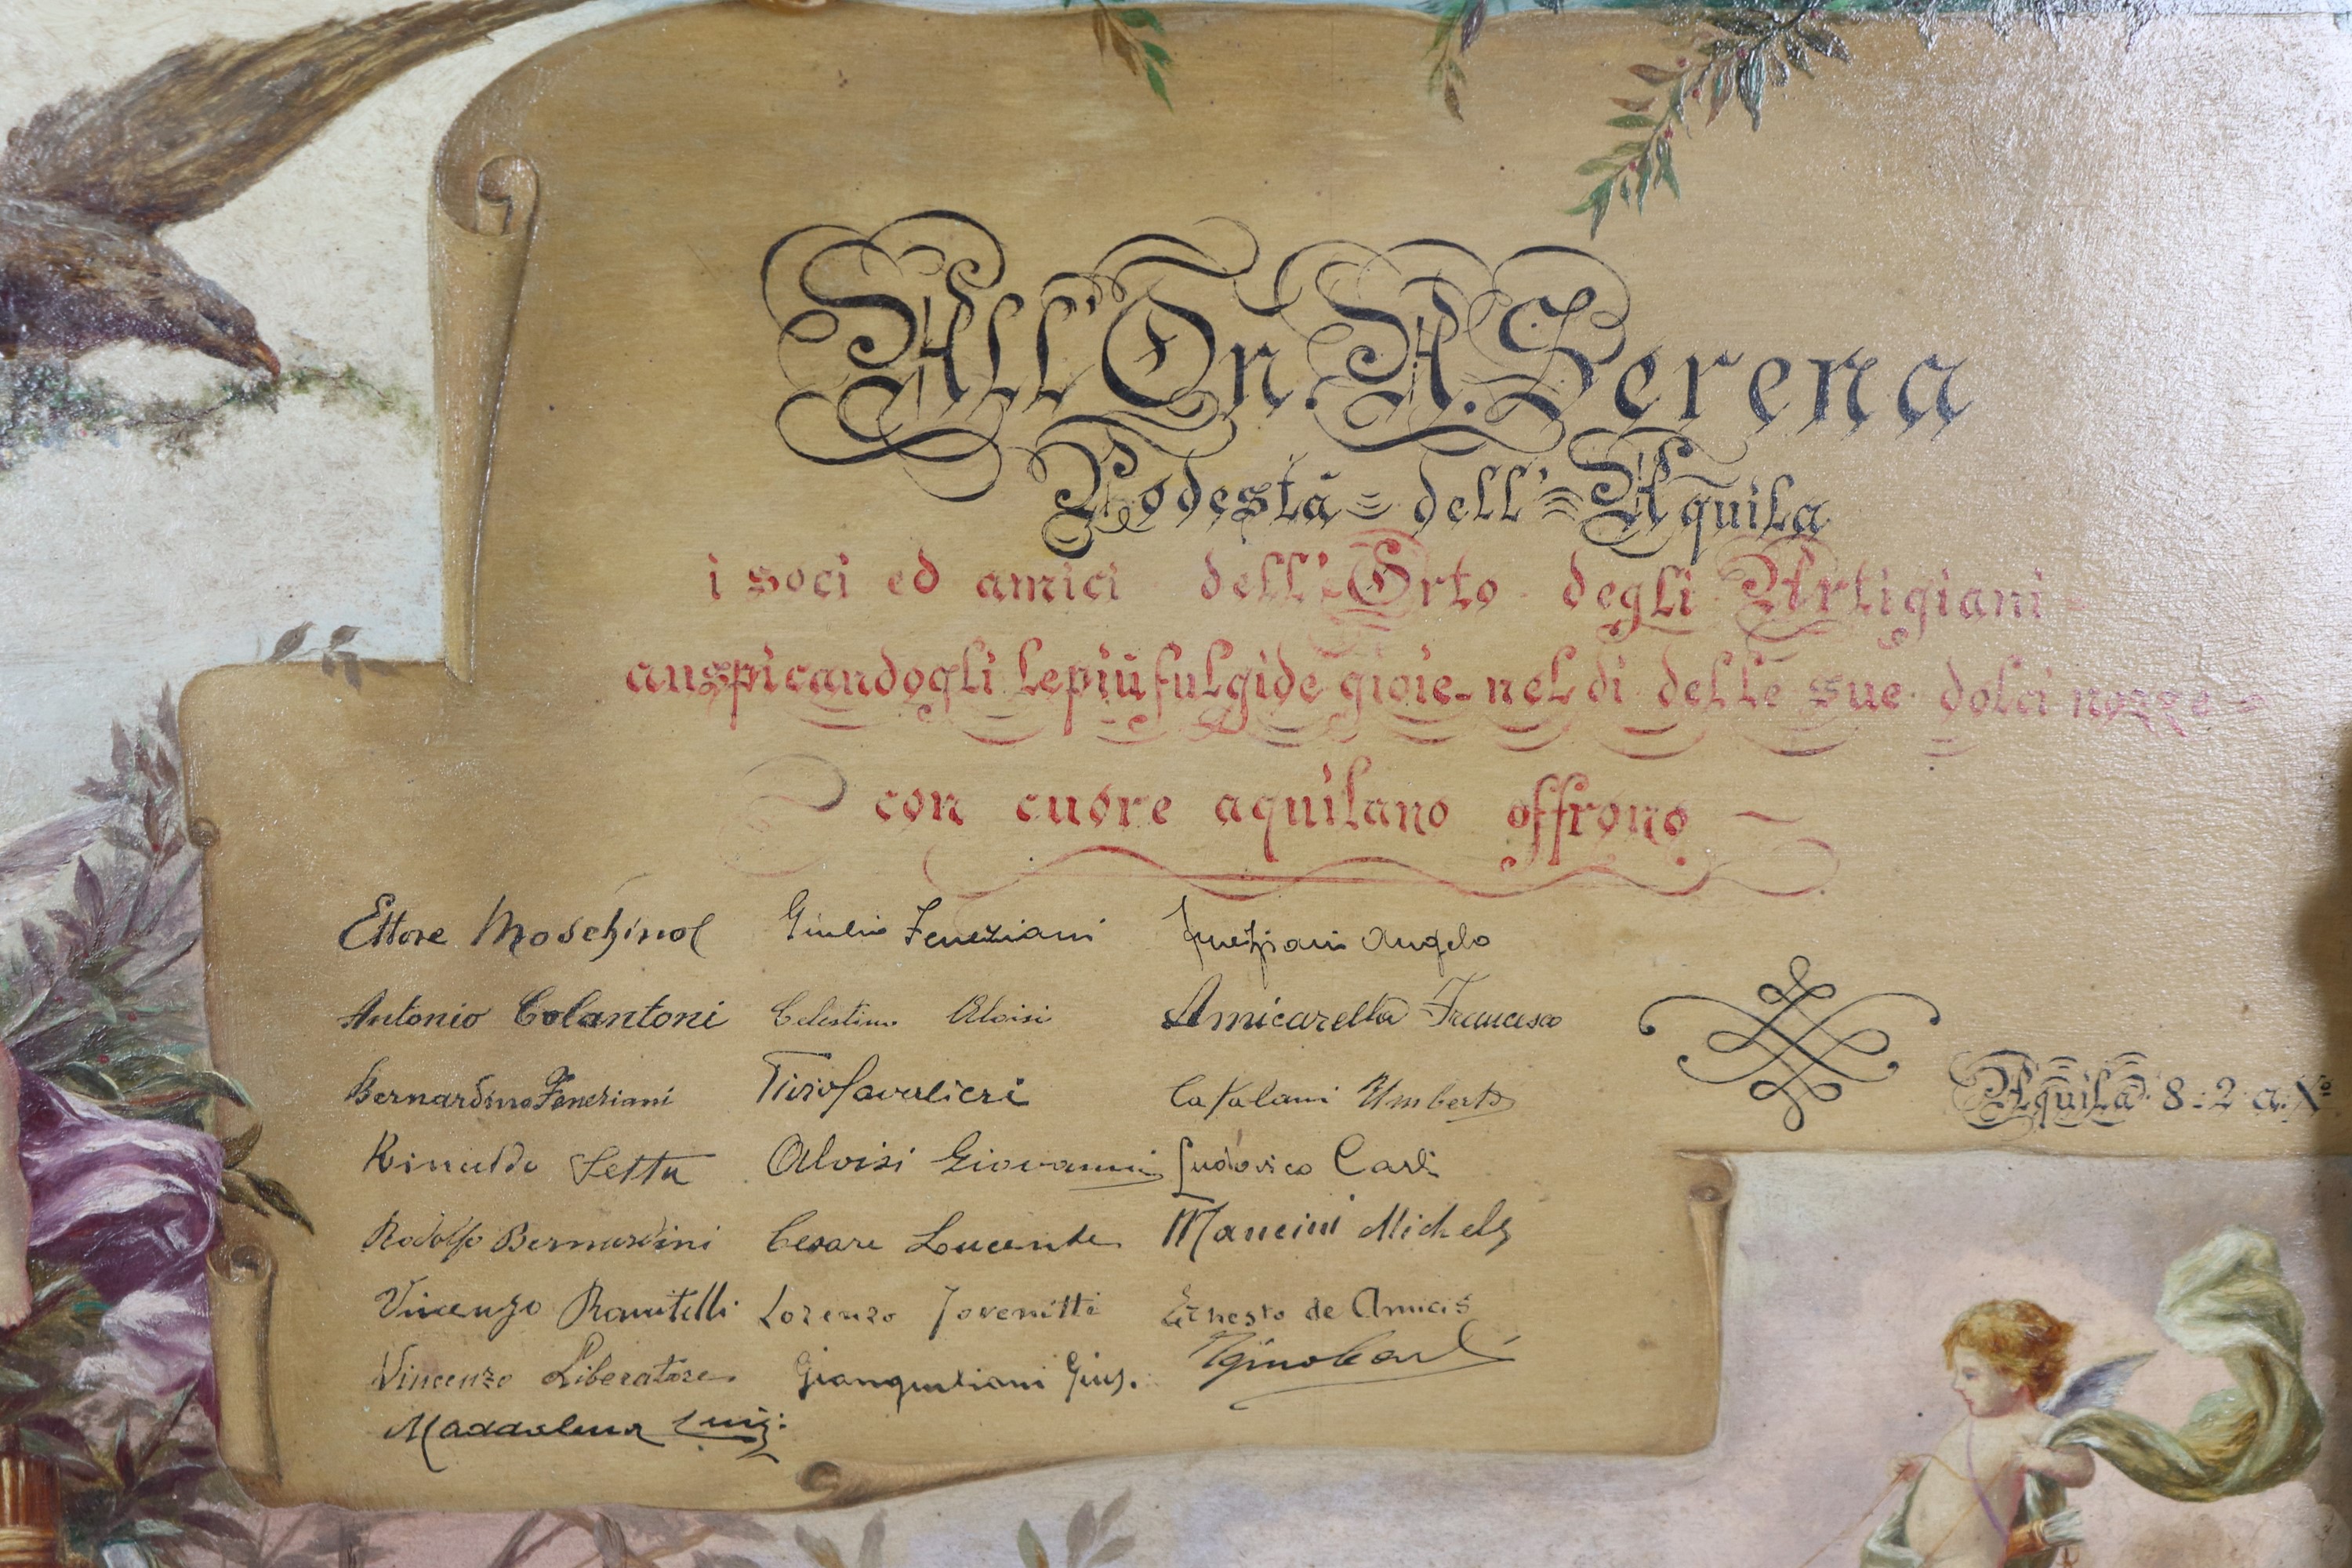 All'On. A. Serena
Podestà dell' Aquila
i soci ed amici dell'Orto degli Artigiani
auspicandogli le più fulgide gioie nel di delle sue dolci nozze
con cuore aquilano offrono
Ettore Moschino Giulio Feneziani Feneziani Angelo
Antonio Colantoni Celestino Aloisi Amicarella Francesco
Bernardino Feneziani Tirso Cavalieri Catalani Umberto
Rinaldo Setta Aloisi Giovanni Ludovico Carli
Rodolfo Bernardini Cesare Lucente Mancini Michele
Vincenzo Ranitelli Lorenzo Jovenitti Ernesto de Amicis
Vincenzo Liberatore Giangiuliani Gius. Igino Carli
Maddalena Luigi
Aquila 8-2 a. X°